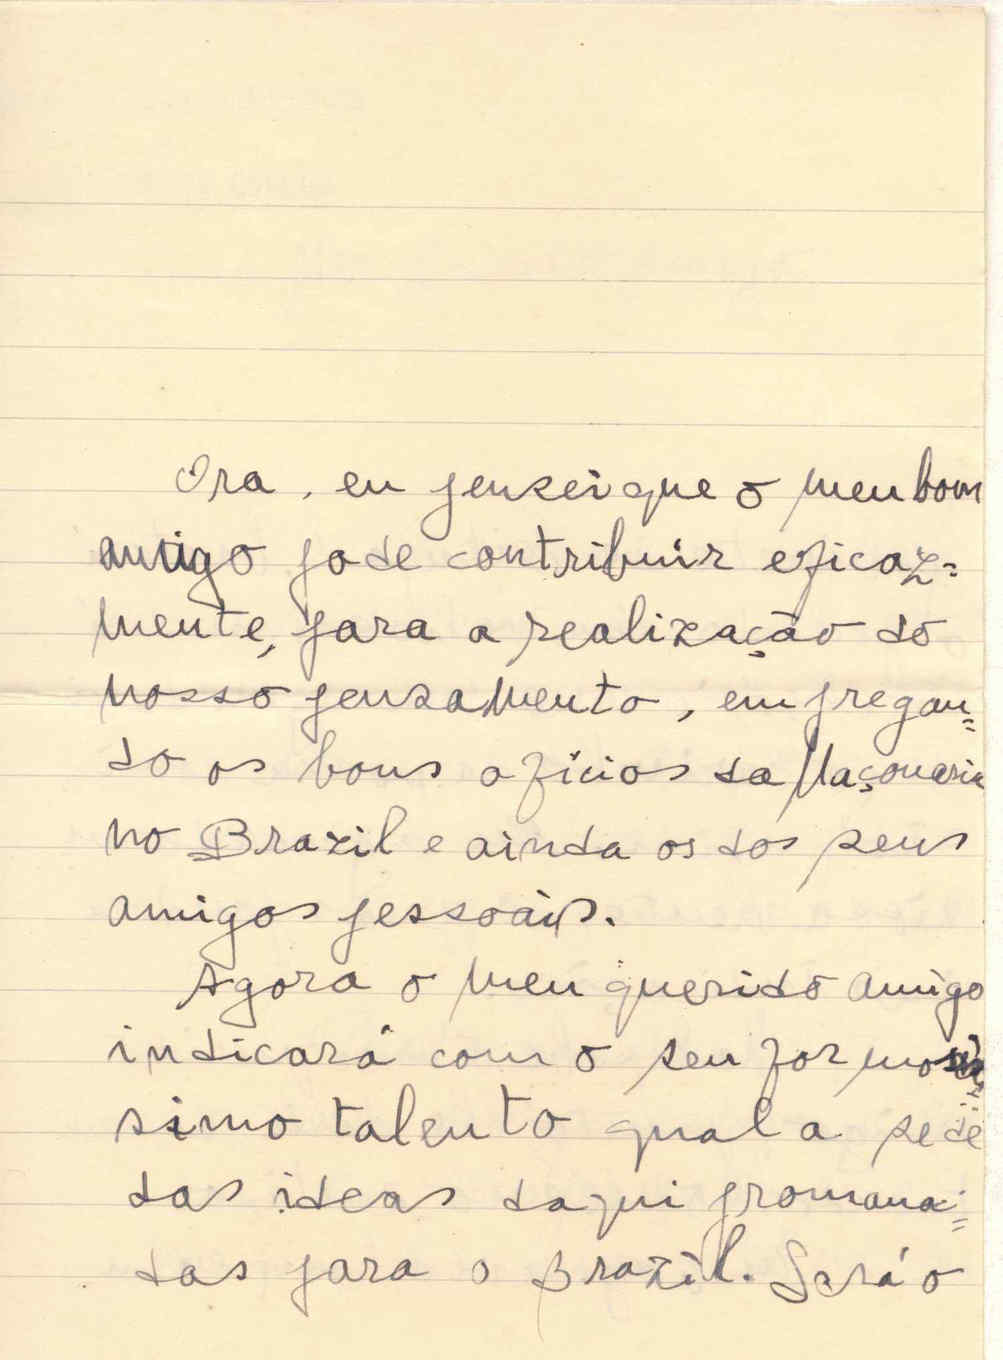 Ora, eu pensei que o meu bom
amigo pode contribuir eficaz=
mente, para a realização do
nosso pensamento, empregan=
do os bons oficios da Maçonaria
no Brazil e ainda os dos seus
amigos pessoais.
Agora o meu querido amigo
indicará com o seu formosis
simo talento qual a sede
das ideas daqui promana=
das para o Brazil. Será o